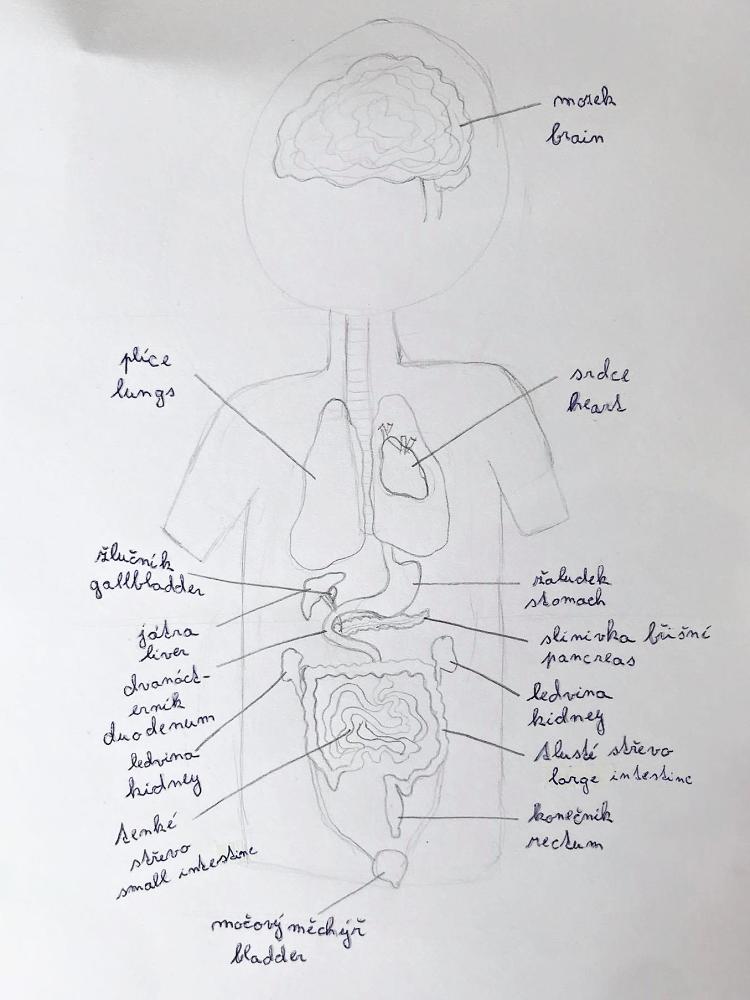 mozek
brain
plíce
lungs
srdce
heart
žlučník
gallbladder
žaludek
stomach
játra
liver
slinivka břišní
pancreas
dvanáct-
erník
duodenum
ledvina
kidney
ledvina
kidney
tlusté střevo
large intestine
tenké
střevo
small intestine
konečník
rectum
močový měchýř
bladder